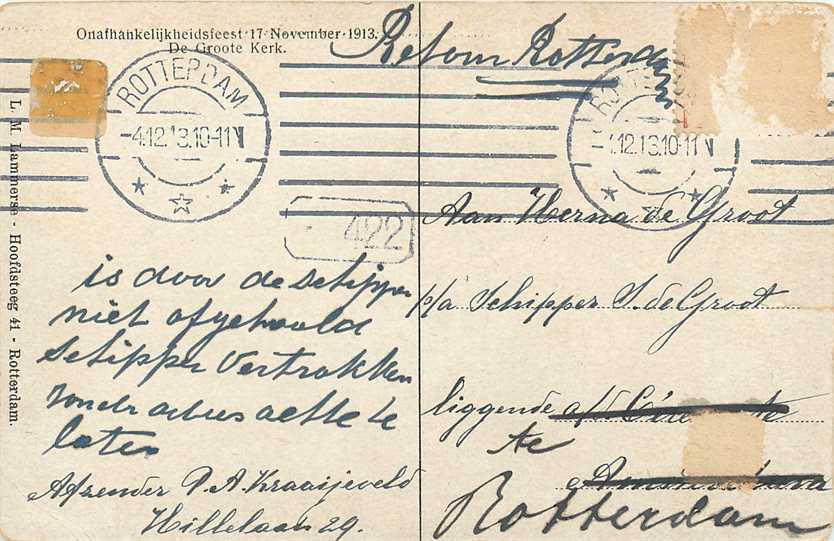 Onafhankelijkheidsfeest 17 November 1913.
De Groote Kerk.
Retour Rotterdam
ROTTERDAM
-4.12.13.10-11V
ROTTERDAM
4.12.13.10-11V
422
L. M. Lammerse - Hoofdsteeg 41 - Rotterdam.
is door de schipper
niet afgehaald
schipper vertrokken
zonder adres achter te
laten
Afzender P. A. Kraaijeveld
Hillelaan 29.
Aan Herna de Groot
p/a Schipper S. de Groot
liggende a/d
te
Rotterdam